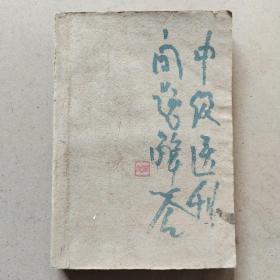 中级医刊
问题解答